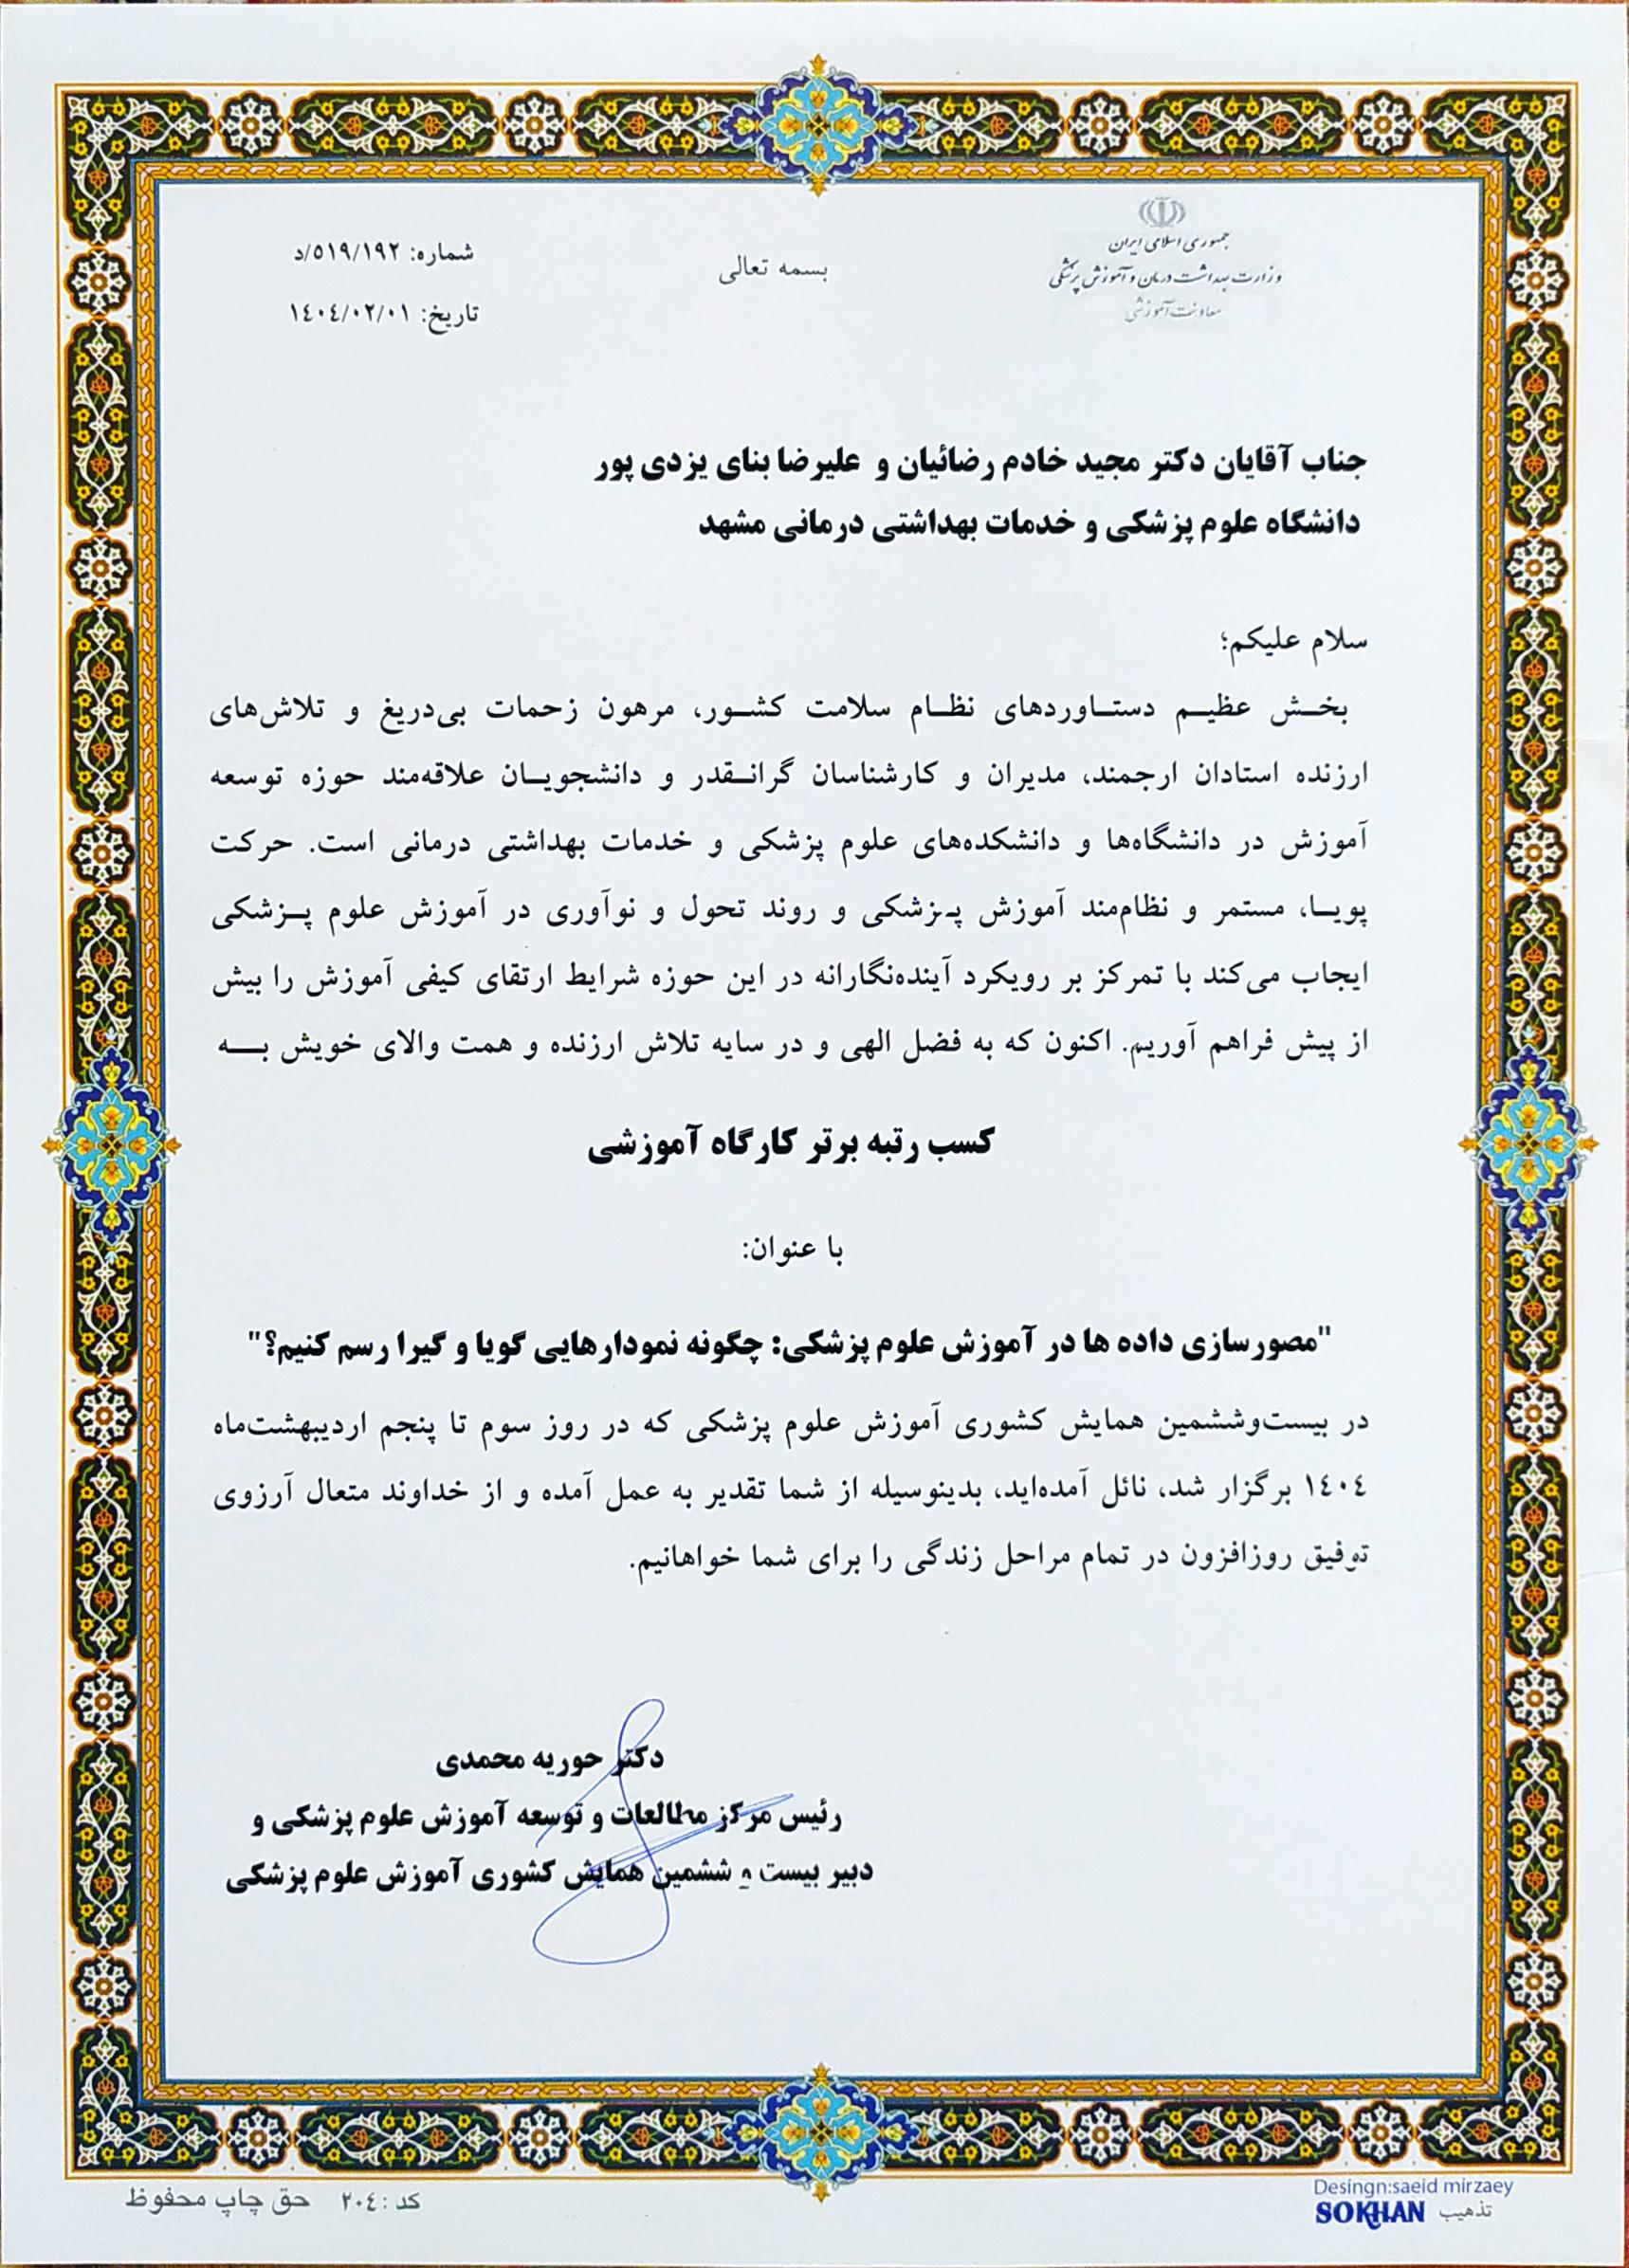 جمهوری اسلامی ایران
وزارت بهداشت درمان و آموزش پزشکی
معاونت آموزشی
بسمه تعالی
شماره: ۵۱۹/۱۹۲/د
تاریخ: ۱۴۰۴/۰۲/۰۱
جناب آقایان دکتر مجید خادم رضائیان و علیرضا بنای یزدی پور
دانشگاه علوم پزشکی و خدمات بهداشتی درمانی مشهد
سلام علیکم؛
بخش عظیم دستاوردهای نظام سلامت کشور، مرهون زحمات بی‌دریغ و تلاش‌های
ارزنده استادان ارجمند، مدیران و کارشناسان گرانقدر و دانشجویان علاقه‌مند حوزه توسعه
آموزش در دانشگاه‌ها و دانشکده‌های علوم پزشکی و خدمات بهداشتی درمانی است. حرکت
پویا، مستمر و نظام‌مند آموزش پزشکی و روند تحول و نوآوری در آموزش علوم پزشکی
ایجاب می‌کند با تمرکز بر رویکرد آینده‌نگارانه در این حوزه شرایط ارتقای کیفی آموزش را بیش
از پیش فراهم آوریم. اکنون که به فضل الهی و در سایه تلاش ارزنده و همت والای خویش به
کسب رتبه برتر کارگاه آموزشی
با عنوان:
"مصورسازی داده ها در آموزش علوم پزشکی: چگونه نمودارهایی گویا و گیرا رسم کنیم؟"
در بیست‌وششمین همایش کشوری آموزش علوم پزشکی که در روز سوم تا پنجم اردیبهشت‌ماه
۱۴۰۴ برگزار شد، نائل آمده‌اید، بدینوسیله از شما تقدیر به عمل آمده و از خداوند متعال آرزوی
توفیق روزافزون در تمام مراحل زندگی را برای شما خواهانیم.
دکتر حوریه محمدی
رئیس مرکز مطالعات و توسعه آموزش علوم پزشکی و
دبیر بیست و ششمین همایش کشوری آموزش علوم پزشکی
کد : ۲۰۴ حق چاپ محفوظ
Desingn:saeid mirzaey
تذهیب SOKHAN